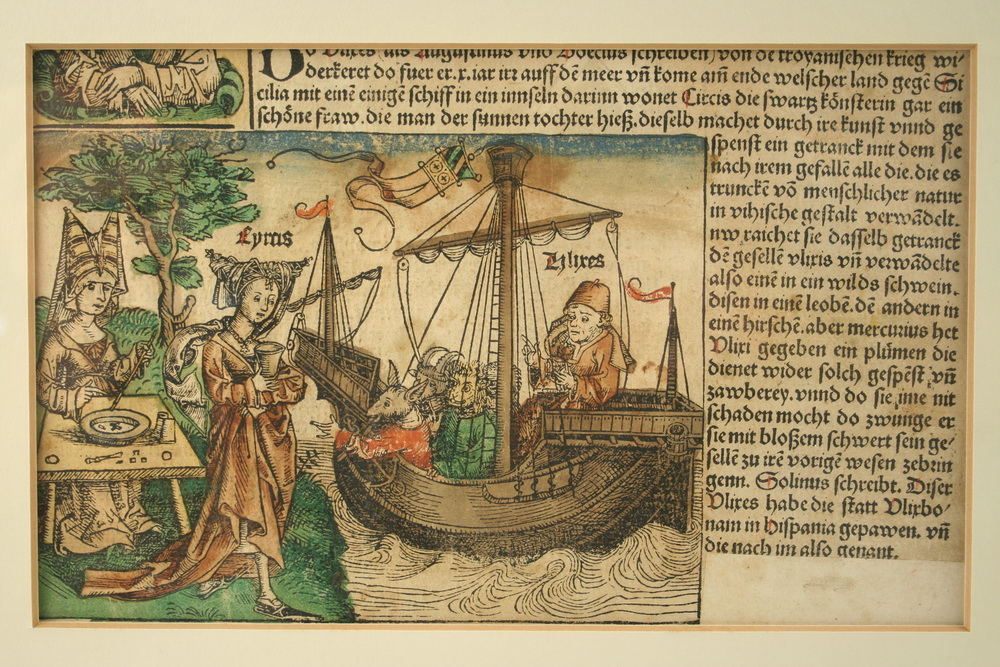 Do Ulixes als Augustinus vnd Boecius schreiben) von dē troyanischen krieg wi-
derkeret do fuer er.x.iar irꝛ auff dē meer vn̄ kome am̄ ende welscher land gegē Si
cilia mit einē einigē schiff in ein innseln darinn wonet Circis die swartz kōnsterin gar ein
schōne fraw. die man der sunnen tochter hieß. dieselb machet durch ire kunst vnnd ge
spenst ein getranck mit dem sie
nach irem gefallē alle die. die es
trunckē vō menschlicher natur
in vihische gestalt verwādelt.
nw raichet sie dasselb getranck
dē gesellē vlixis vn̄ verwādelte
also einē in ein wilds schwein.
disen in einē leobē. dē andern in
einē hirschē. aber mercurius het
Vlixi gegeben ein plůmen die
dienet wider solch gespēst vn̄
zawberey. vnnd do sie ime nit
schaden mocht do zwunge er
sie mit bloßem schwert sein ge/
sellē zu irē vorigē wesen zebrin
genn. Solinus schreibt. Diser
Vlixes habe die statt Vlixbo/
nam in hispania gepawen. vn̄
die nach im also genant.
Cyrcis
Vlixes